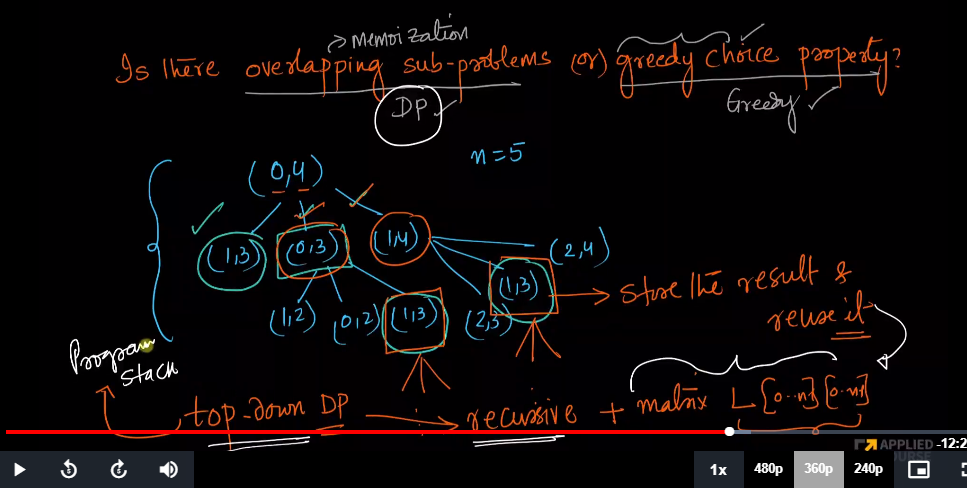 → memoization
Is there overlapping sub-problems (or) greedy choice property?
DP ✓
Greedy ✓
n=5
(0,4)
(1,3) (0,3) (1,4) (2,4)
(1,3) → store the result &
(1,2) (0,2) (1,3) (2,3) reuse it
Program
stack
top-down DP → recursive + matrix L[0..n-1][0..n-1]
APPLIED
COURSE
-12:2
5 5 1x 480p 360p 240p